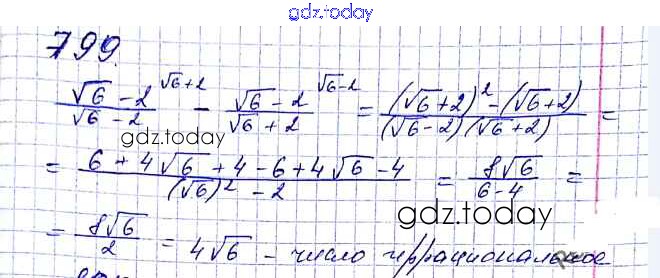 gdz.today
799.
√6 - 2 / √6 - 2 ^√6+2 - √6 - 2 / √6 + 2 ^√6-2 = (√6+2)² - (√6+2) / (√6-2)(√6+2) =
gdz.today
= 6 + 4√6 + 4 - 6 + 4√6 - 4 / (√6)² - 2 = 8√6 / 6-4 =
gdz.today
= 8√6 / 2 = 4√6 - число иррациональное